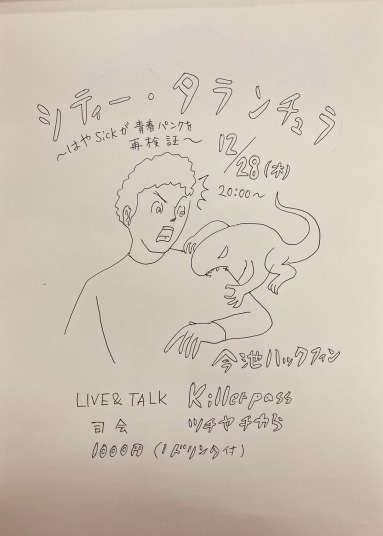 シティー・タランチュラ
〜はやSickが青春パンクを
再検証〜
12/28(木)
20:00〜
今池ハックフィン
LIVE&TALK Killerpass
司会 ツチヤチカら
1000円(1ドリンク付)